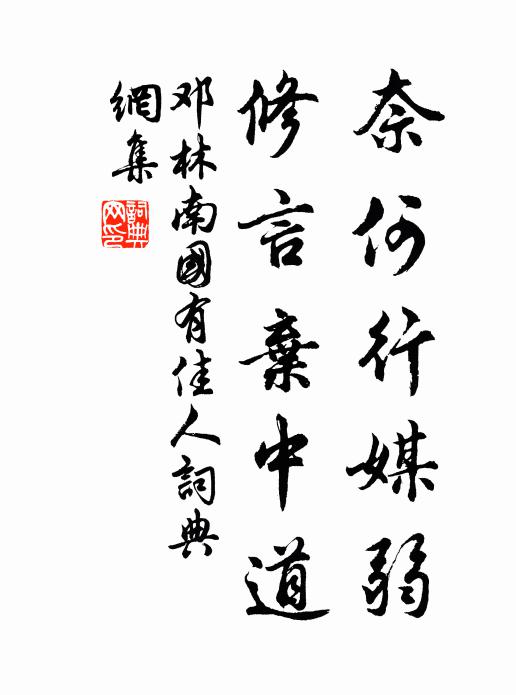 奈何行媒弱
修言棄中道
邓林南國有佳人詞典
網集
詞典
网印